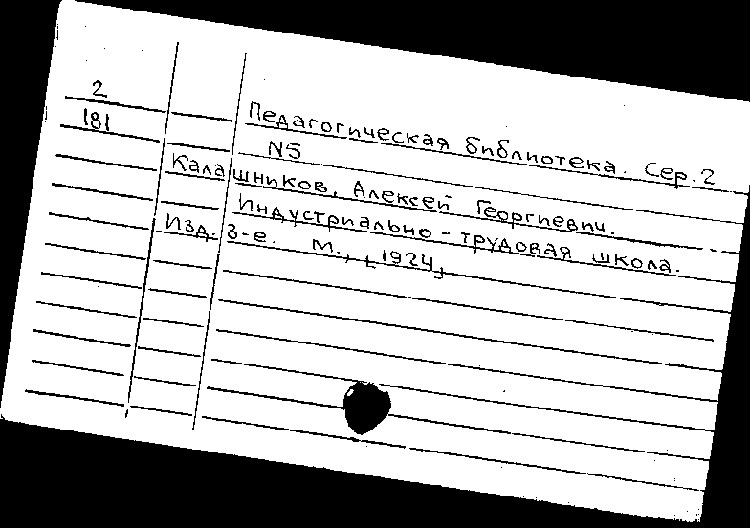 2
181
Педагогическая библиотека. Сер. 2
N5
Калашников, Алексей Георгиевич.
Индустриально - трудовая школа.
Изд. 3-е. М., [1924]